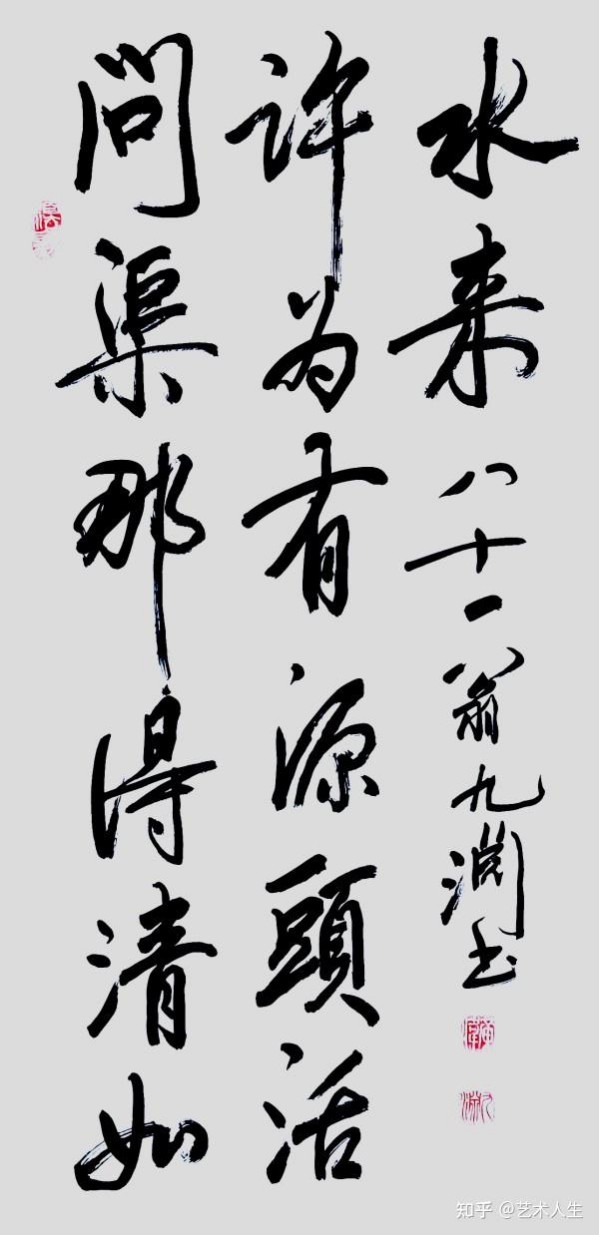 问渠那得清如
许为有源頭活
水来 八十一翁九渊书
知乎 @艺术人生